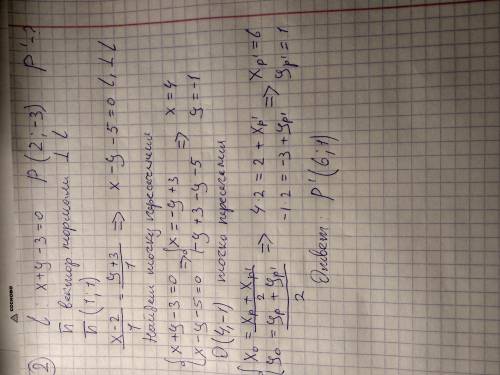 СОСНОВО
② l: x+y-3=0 P(2;-3) P'-?
n̅ вектор нормали ⊥ l
n̅(1,1)
(x-2)/1 = (y+3)/1 => x-y-5=0 l₁⊥l
Найдем точку пересечения
{x+y-3=0 => {x=-y+3 => x=4
{x-y-5=0 {-y+3-y-5 y=-1
O(4,-1) точка пересечения
{x₀ = (xp+xp')/2 => 4·2=2+xp' => xp'=6
{y₀ = (yp+yp')/2 -1·2=-3+yp' yp'=1
Ответ: P'(6;1)